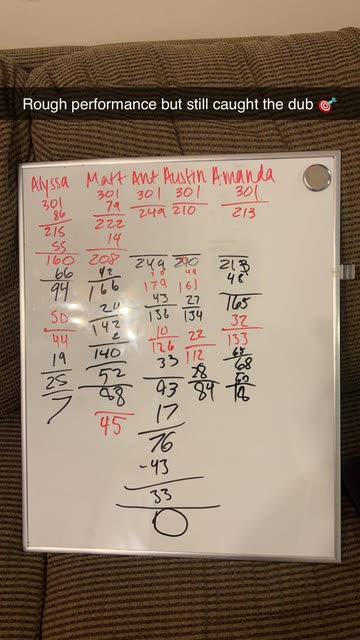 Rough performance but still caught the dub 🎯
Alyssa Matt Ant Austin Amanda
301 301 301 301 301
86 79 249 210 213
215 222
55 14
160 208 249 213
66 42 48
94 166 179 161 165
43 27
50 142 136 134 32
44 10 22 133
140 126 112
19 52 33 28 68
25 88 93 84 18
7 45 17
76
-43
33
0